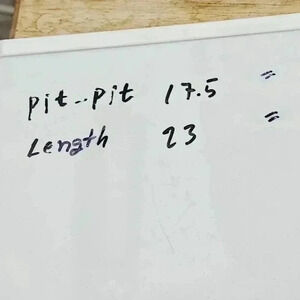 pit--pit 17.5 "
Length 23 "